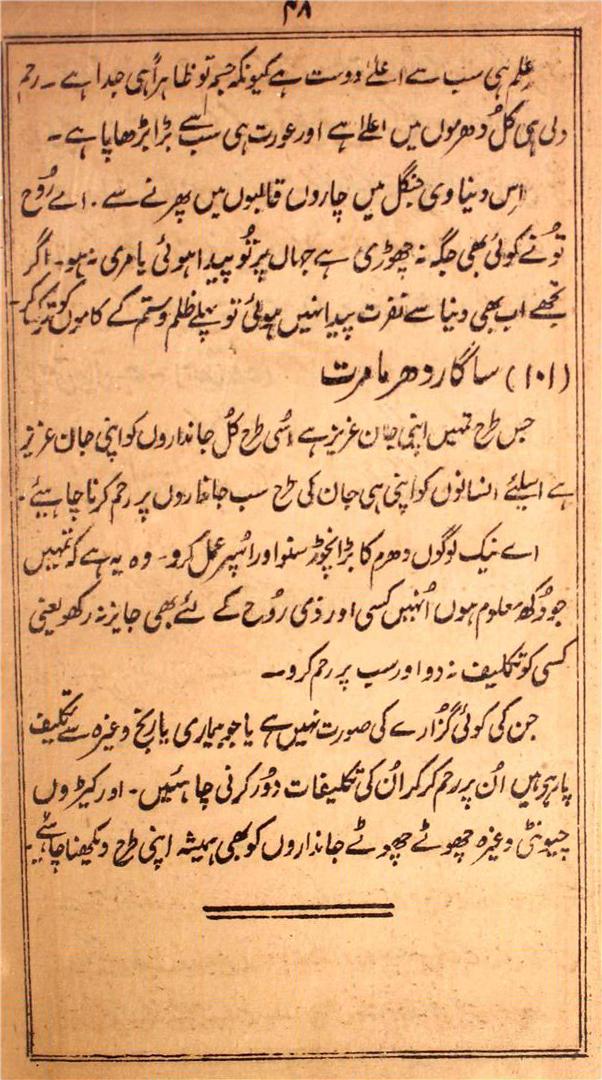 ۴۸
علم ہی سب سے اعلےٰ دوست ہے کیونکہ جسم تو ظاہراً ہی جدا ہے ۔ رحم
دلی ہی کل دھرموں میں اعلےٰ ہے اور عورت ہی سب سے بڑا بڑھاپا ہے ۔
اِس دنیاوی جنگل میں چاروں قالبوں میں پھرنے سے ۔ اے رُوح
تو نے کوئی بھی جگہ نہ چھوڑی ہے جہاں پر تُو پیدا ہوئی یا مری نہ ہو۔ اگر
تجھے اب بھی دنیا سے نفرت پیدا نہیں ہوئی تو پہلے ظلم و ستم کے کاموں کو
(۱۰۱) ساگار دھرمامرت
جس طرح تمہیں اپنی جان عزیز ہے اُسی طرح کُل جانداروں کو اپنی جان عزیز
ہے اسلئے انسانوں کو اپنی ہی جان کی طرح سب جانداروں پر رحم کرنا چاہئیے ۔
اے نیک لوگوں دھرم کا بڑا نچوڑ سنو اور اُسپر عمل کرو۔ وہ یہ ہے کہ تمہیں
جو دُکھ معلوم ہوں اُنہیں کسی اور ذی رُوح کے لئے بھی جایز نہ رکھو یعنی
کسی کو تکلیف نہ دو اور سب پر رحم کرو ۔
جن کی کوئی گزارے کی صورت نہیں ہے یا جو بیماری یا رنج وغیرہ سے تکلیف
پا رہی ہیں اُن پر رحم کر کر اُن کی تکلیفات دُور کرنی چاہئیں ۔ اور کیڑوں
چیونٹی وغیرہ چھوٹے چھوٹے جانداروں کو بھی ہمیشہ اپنی طرح دیکھنا چاہئے ۔